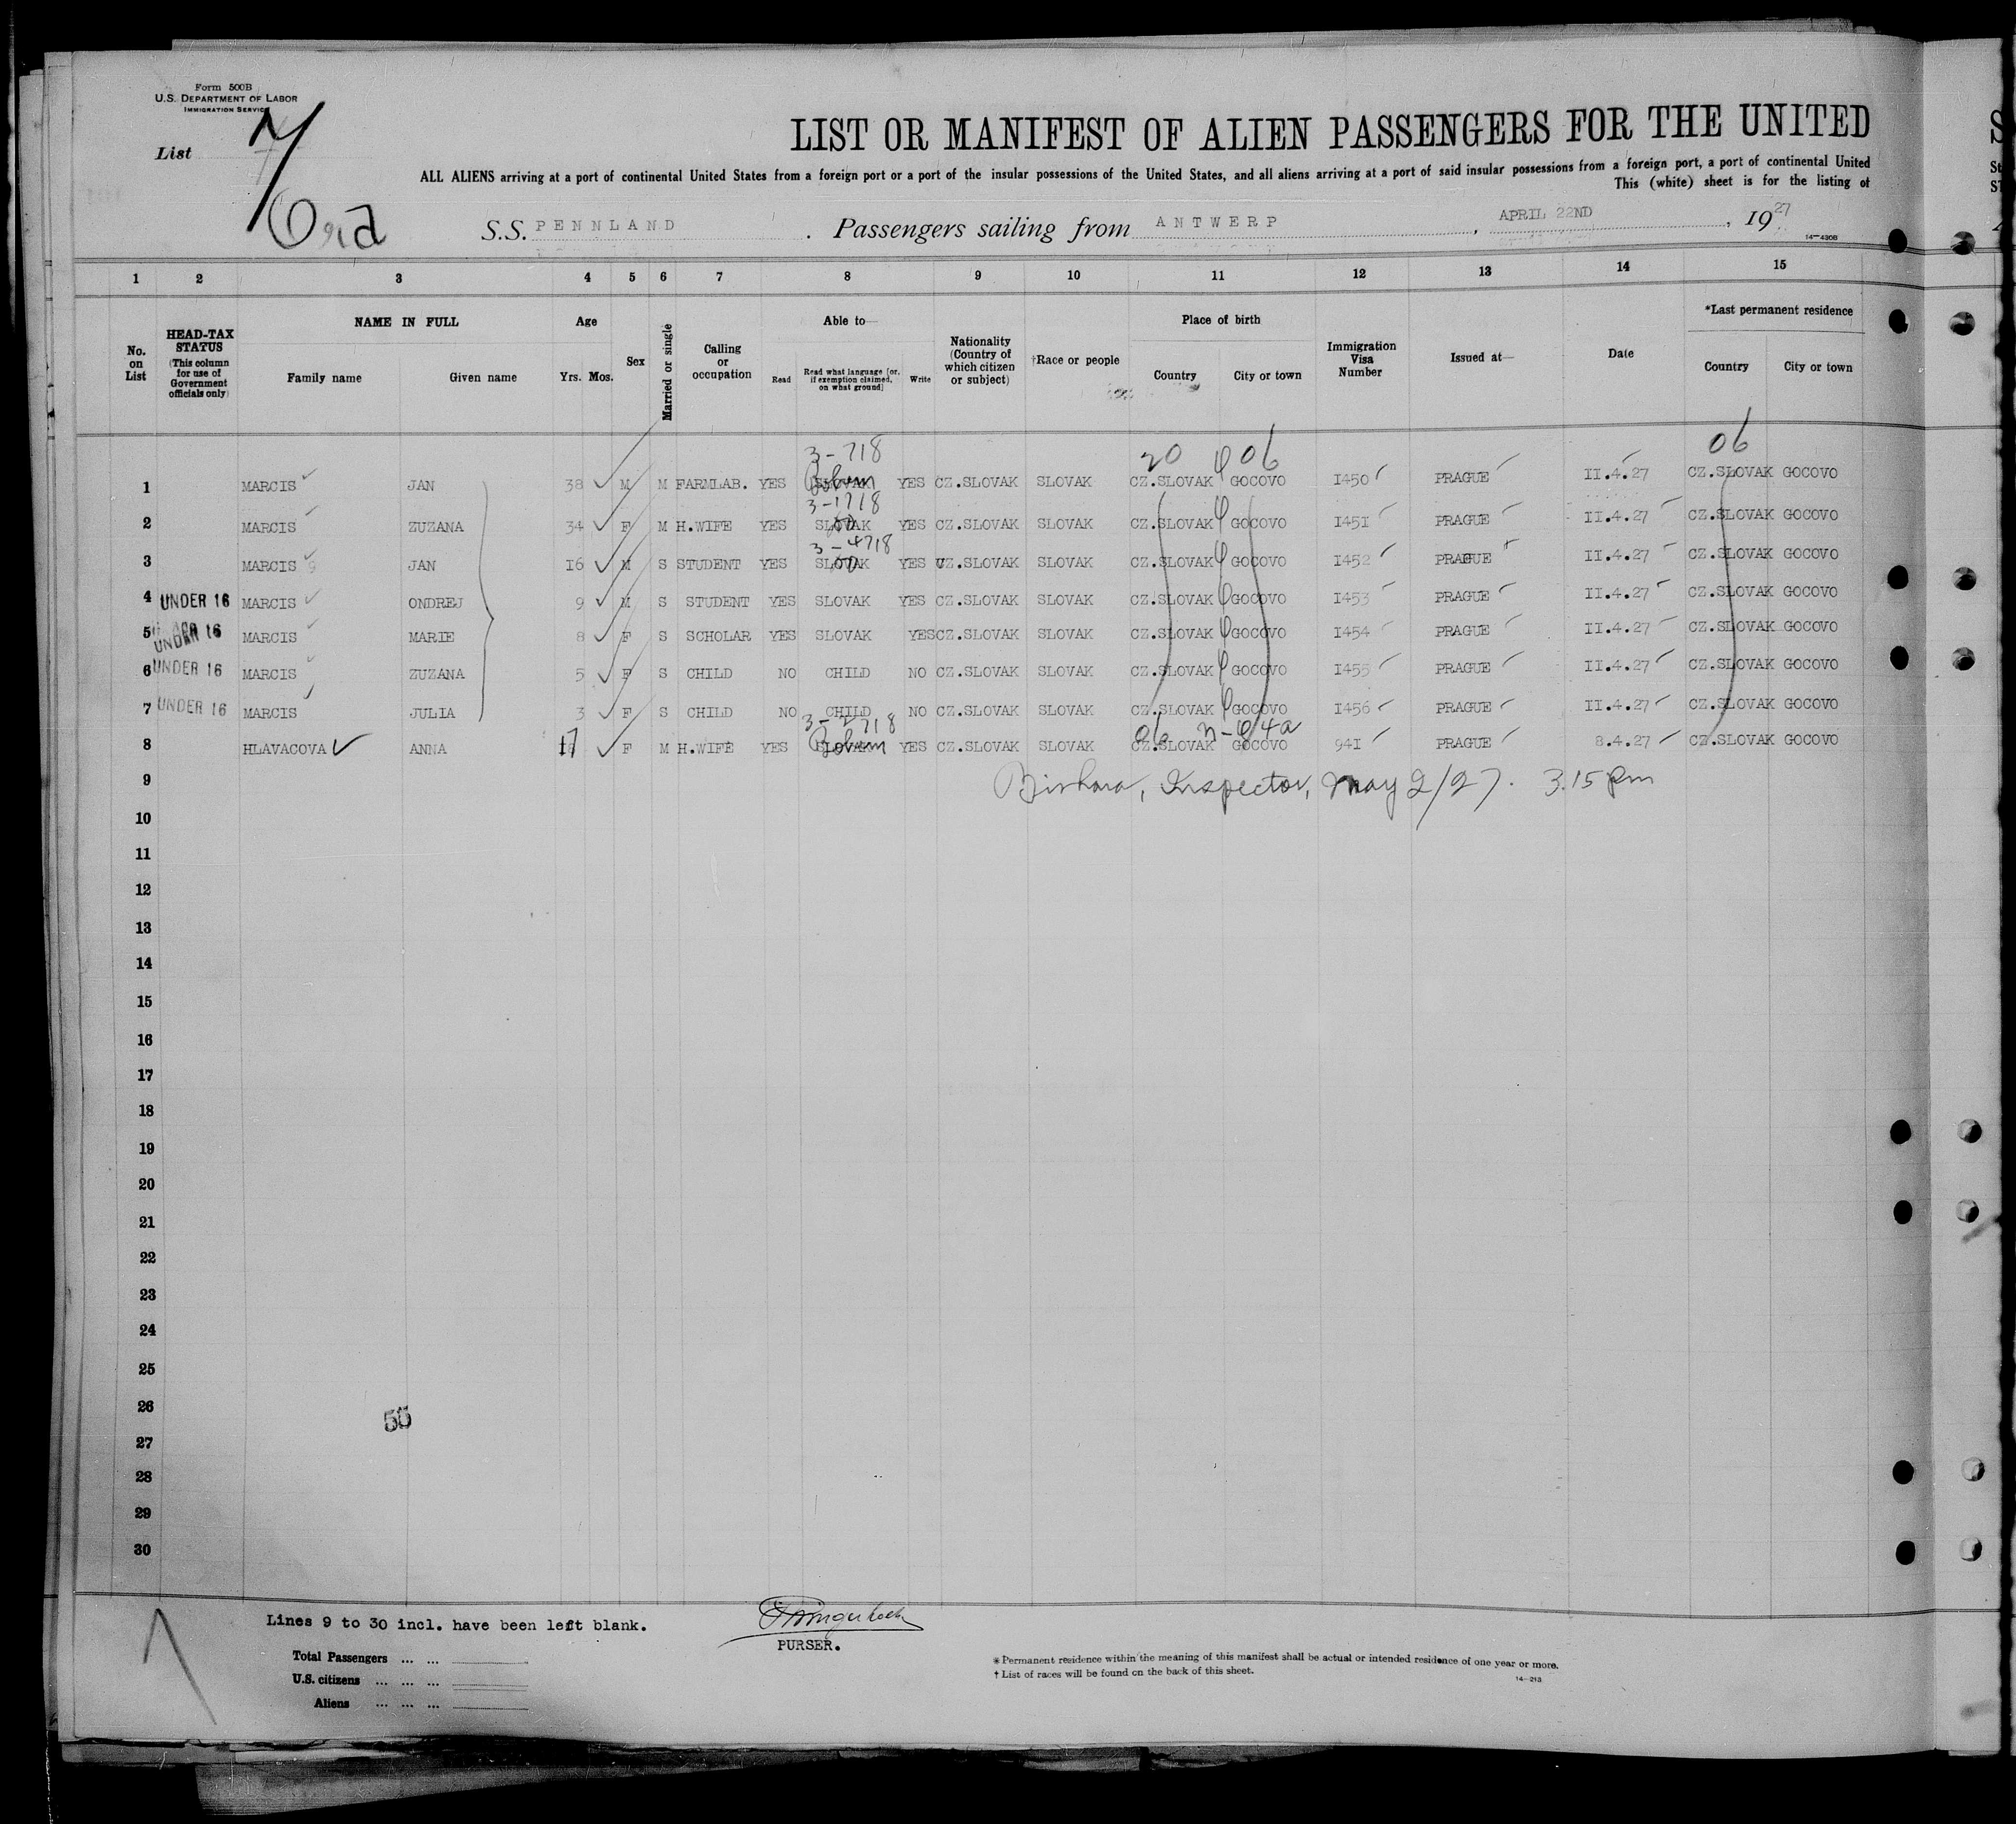 Form 500B
U.S. DEPARTMENT OF LABOR
IMMIGRATION SERVICE
List 7
LIST OR MANIFEST OF ALIEN PASSENGERS FOR THE UNITED
ALL ALIENS arriving at a port of continental United States from a foreign port or a port of the insular possessions of the United States, and all aliens arriving at a port of said insular possessions from a foreign port, a port of continental United
This (white) sheet is for the listing of
S.S. PENNLAND . Passengers sailing from ANTWERP , APRIL 22ND , 1927
14—430B
1 2 3 4 5 6 7 8 9 10 11 12 13 14 15
No. on List
HEAD-TAX STATUS
(This column for use of Government officials only)
NAME IN FULL
Family name Given name
Age
Yrs. Mos.
Sex
Married or single
Calling or occupation
Able to—
Read
Read what language [or, if exemption claimed, on what ground]
Write
Nationality (Country of which citizen or subject)
†Race or people
Place of birth
Country City or town
Immigration Visa Number
Issued at—
Date
*Last permanent residence
Country City or town
3-718 20 06 06
1 MARCIS JAN 38 M M FARMLAB. YES SLOVAK YES CZ.SLOVAK SLOVAK CZ.SLOVAK GOCOVO I450 PRAGUE II.4.27 CZ.SLOVAK GOCOVO
3-1718
2 MARCIS ZUZANA 34 F M H.WIFE YES SLOVAK YES CZ.SLOVAK SLOVAK CZ.SLOVAK GOCOVO I45I PRAGUE II.4.27 CZ.SLOVAK GOCOVO
3-4718
3 MARCIS JAN I6 M S STUDENT YES SLOVAK YES CZ.SLOVAK SLOVAK CZ.SLOVAK GOCOVO I452 PRAGUE II.4.27 CZ.SLOVAK GOCOVO
4 UNDER 16 MARCIS ONDREJ 9 M S STUDENT YES SLOVAK YES CZ.SLOVAK SLOVAK CZ.SLOVAK GOCOVO I453 PRAGUE II.4.27 CZ.SLOVAK GOCOVO
5 UNDER 16 MARCIS MARIE 8 F S SCHOLAR YES SLOVAK YES CZ.SLOVAK SLOVAK CZ.SLOVAK GOCOVO I454 PRAGUE II.4.27 CZ.SLOVAK GOCOVO
6 UNDER 16 MARCIS ZUZANA 5 F S CHILD NO CHILD NO CZ.SLOVAK SLOVAK CZ.SLOVAK GOCOVO I455 PRAGUE II.4.27 CZ.SLOVAK GOCOVO
7 UNDER 16 MARCIS JULIA 3 F S CHILD NO CHILD NO CZ.SLOVAK SLOVAK CZ.SLOVAK GOCOVO I456 PRAGUE II.4.27 CZ.SLOVAK GOCOVO
8 HLAVACOVA ANNA 17 F M H.WIFE YES SLOVAK YES CZ.SLOVAK SLOVAK CZ.SLOVAK GOCOVO 94I PRAGUE 8.4.27 CZ.SLOVAK GOCOVO
9 Inspector, May 2/27. 3.15 pm
10
11
12
13
14
15
16
17
18
19
20
21
22
23
24
25
26
55
27
28
29
30
Lines 9 to 30 incl. have been left blank.
PURSER.
Total Passengers ... ...
U.S. citizens ... ... ...
Aliens ... ... ...
* Permanent residence within the meaning of this manifest shall be actual or intended residence of one year or more.
† List of races will be found on the back of this sheet.
14—213